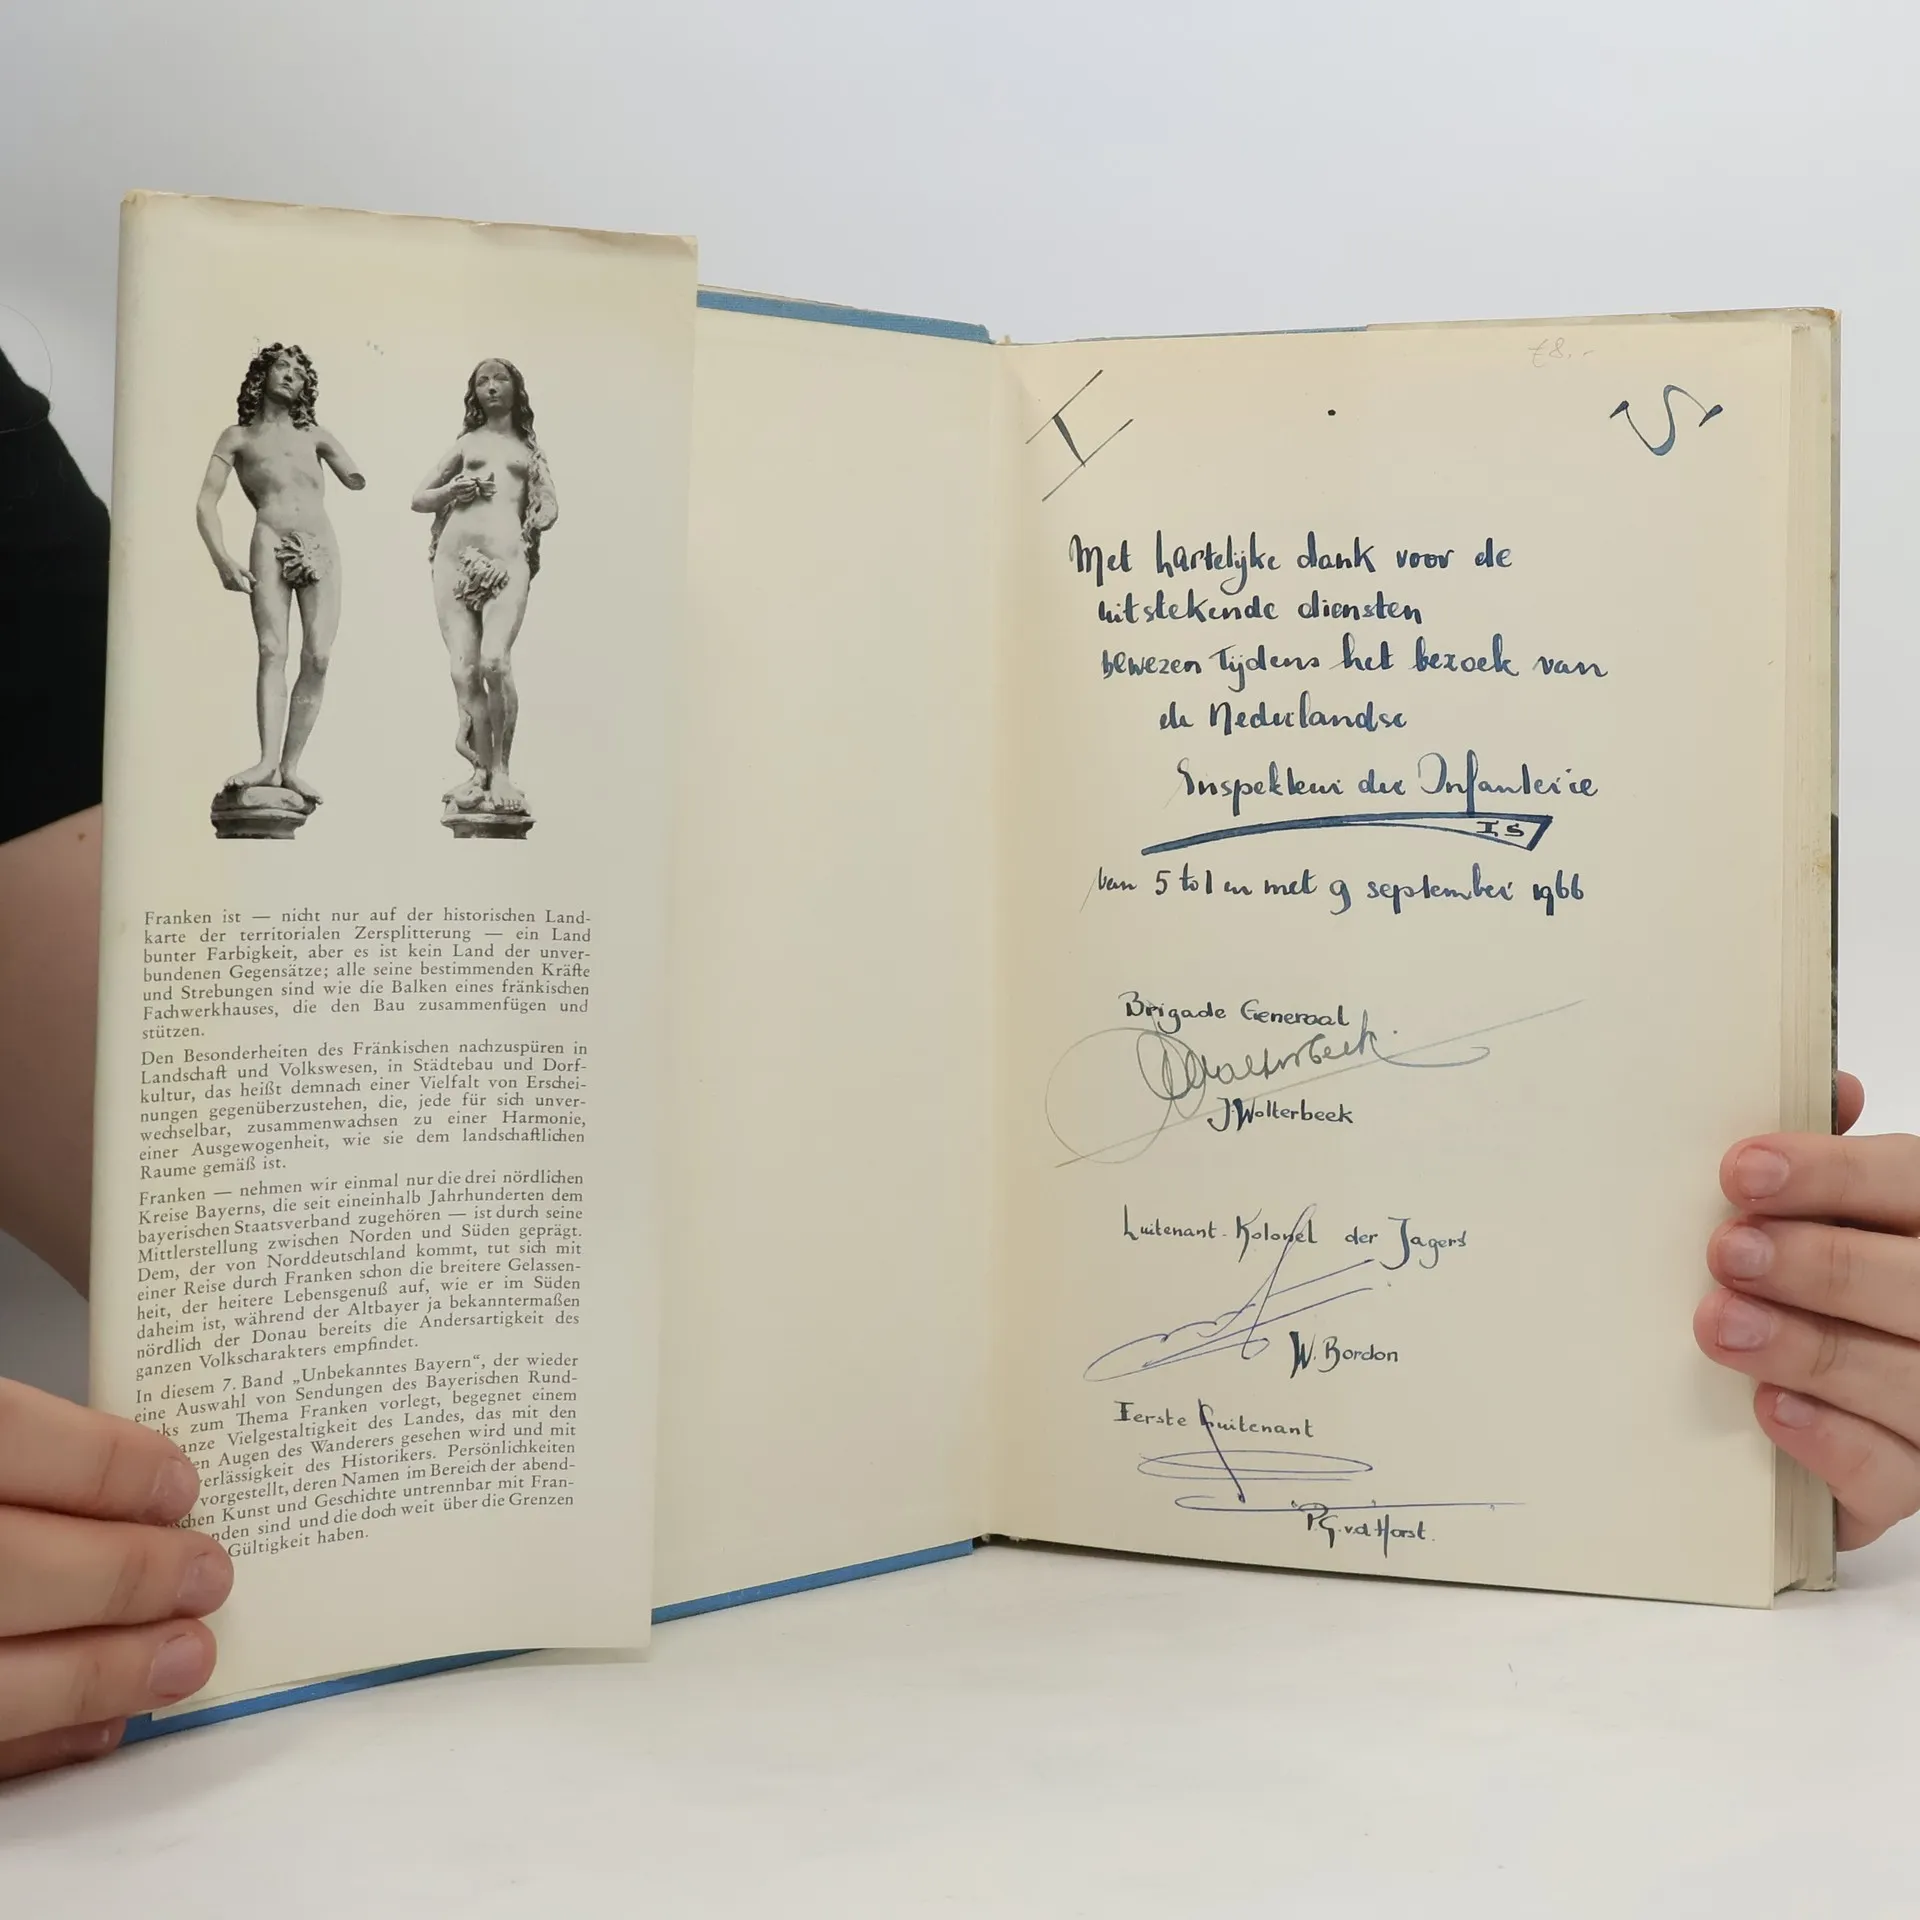 Franken ist — nicht nur auf der historischen Land-
karte der territorialen Zersplitterung — ein Land
bunter Farbigkeit, aber es ist kein Land der unver-
bundenen Gegensätze; alle seine bestimmenden Kräfte
und Strebungen sind wie die Balken eines fränkischen
Fachwerkhauses, die den Bau zusammenfügen und
stützen.
Den Besonderheiten des Fränkischen nachzuspüren in
Landschaft und Volkswesen, in Städtebau und Dorf-
kultur, das heißt demnach einer Vielfalt von Erschei-
nungen gegenüberzustehen, die, jede für sich unver-
wechselbar, zusammenwachsen zu einer Harmonie,
einer Ausgewogenheit, wie sie dem landschaftlichen
Raume gemäß ist.
Franken — nehmen wir einmal nur die drei nördlichen
Kreise Bayerns, die seit eineinhalb Jahrhunderten dem
bayerischen Staatsverband zugehören — ist durch seine
Mittlerstellung zwischen Norden und Süden geprägt.
Dem, der von Norddeutschland kommt, tut sich mit
einer Reise durch Franken schon die breitere Gelassen-
heit, der heitere Lebensgenuß auf, wie er im Süden
daheim ist, während der Altbayer ja bekanntermaßen
nördlich der Donau bereits die Andersartigkeit des
ganzen Volkscharakters empfindet.
In diesem 7. Band „Unbekanntes Bayern“, der wieder
eine Auswahl von Sendungen des Bayerischen Rund-
ks zum Thema Franken vorlegt, begegnet einem
anze Vielgestaltigkeit des Landes, das mit den
en Augen des Wanderers gesehen wird und mit
verlässigkeit des Historikers. Persönlichkeiten
vorgestellt, deren Namen im Bereich der abend-
schen Kunst und Geschichte untrennbar mit Fran-
nden sind und die doch weit über die Grenzen
Gültigkeit haben.
8.-
I . S
Met hartelijke dank voor de
uitstekende diensten
bewezen tijdens het bezoek van
de Nederlandse
Inspekteur der Infanterie
IS
van 5 tot en met 9 september 1966
Brigade Generaal
Wolterbeek
J.Wolterbeek
Luitenant-Kolonel der Jagers
W. Bordon
Eerste Luitenant
P.G. v.d. Horst.